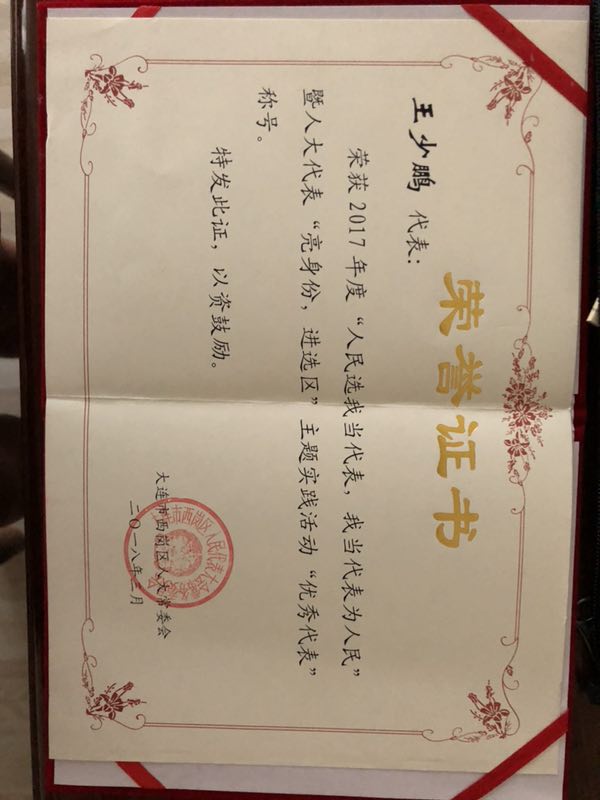 荣誉证书
王少鹏 代表：
荣获2017年度“人民选我当代表，我当代表为人民”
暨人大代表“亮身份，进选区”主题实践活动“优秀代表”
称号。
特发此证，以资鼓励。
大连市西岗区人大常委会
二〇一八年二月